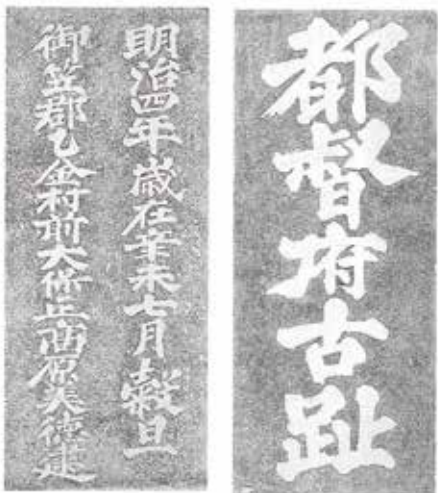 都督府古趾
明治四年歳在辛未七月穀旦
御笠郡乙金村前大保正高原美徳建